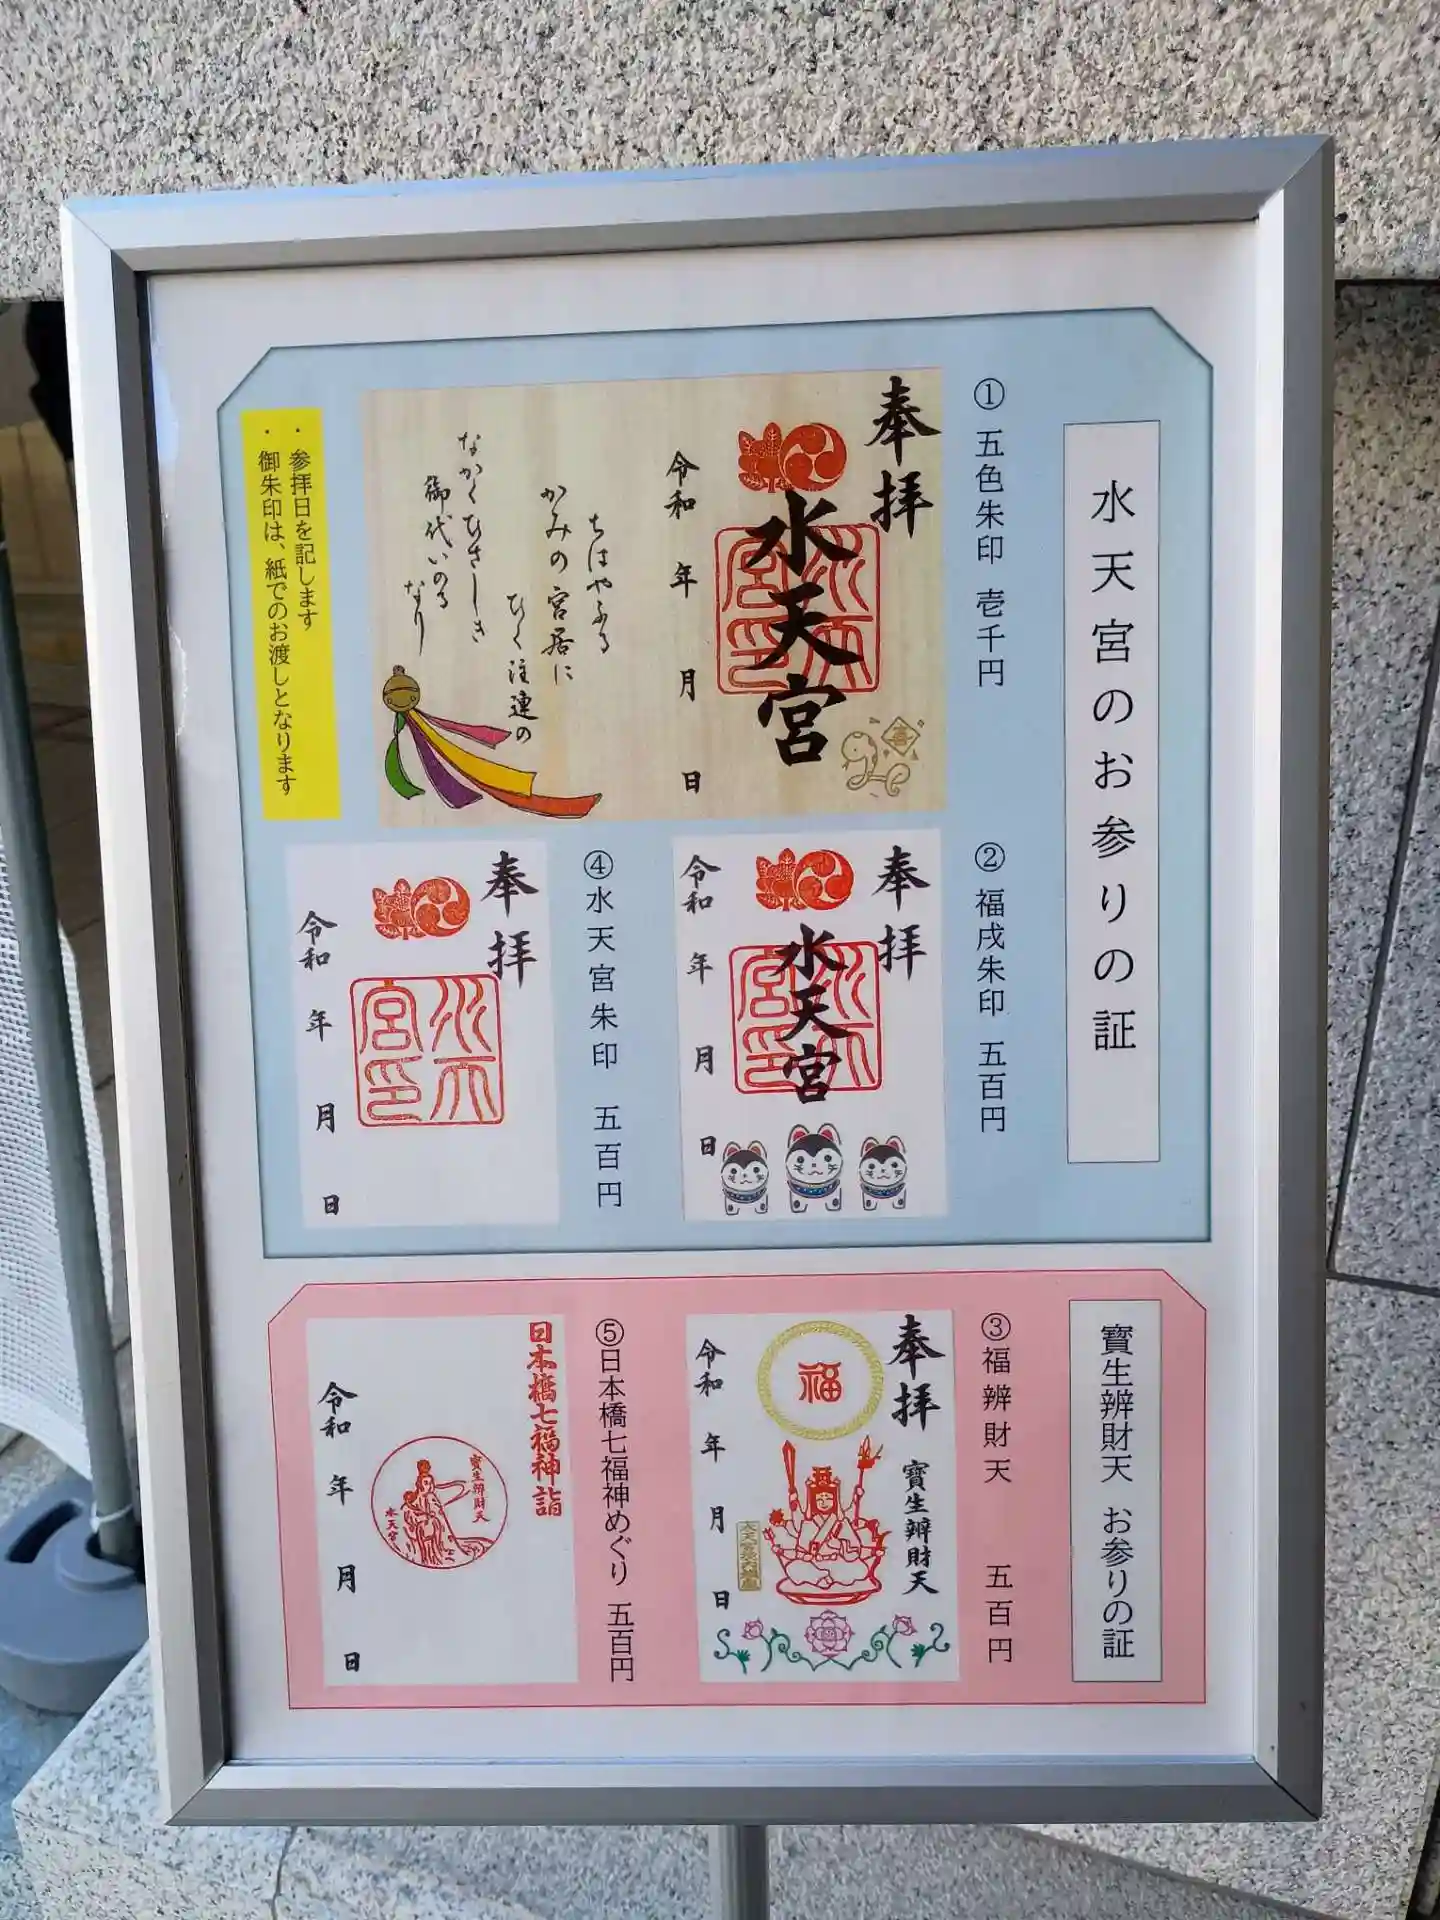 水天宮のお参りの証
① 五色朱印 壱千円
奉拝
水天宮
水天宮印
喜
令和 年 月 日
ちはやふる
かみの宮居に
ひく注連の
なかくひさしき
御代いのる
なり
・参拝日を記します
・御朱印は、紙でのお渡しとなります
② 福戌朱印 五百円
奉拝
水天宮
水天宮印
令和 年 月 日
④ 水天宮朱印 五百円
奉拝
水天宮印
令和 年 月 日
寳生辨財天 お参りの証
③ 福辨財天 五百円
奉拝
寳生辨財天
福
令和 年 月 日
⑤ 日本橋七福神めぐり 五百円
日本橋七福神詣
寳生辨財天
水天宮
令和 年 月 日